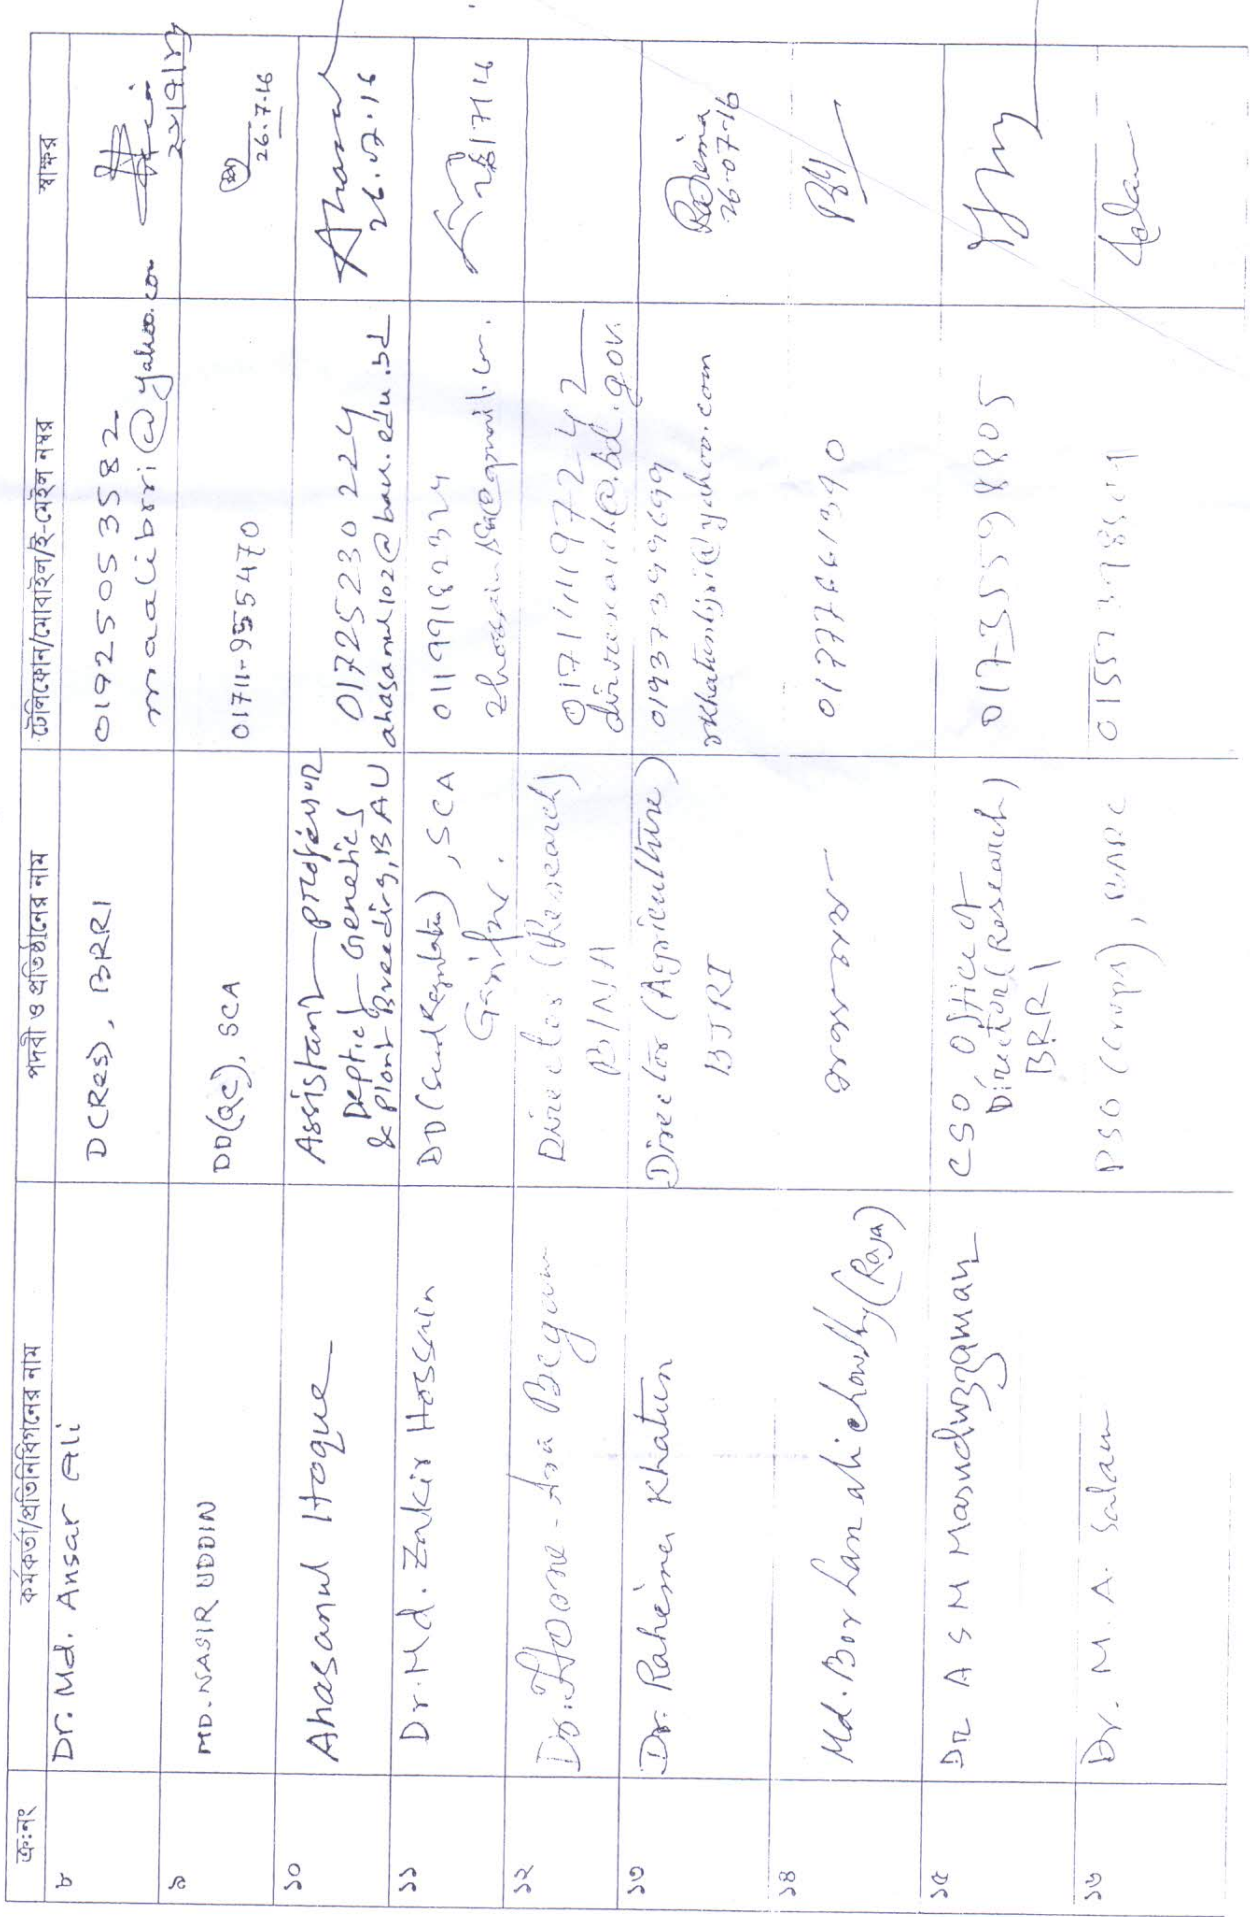 ক্র:নং
কর্মকর্তা/প্রতিনিধিগনের নাম
পদবী ও প্রতিষ্ঠানের নাম
টেলিফোন/মোবাইল/ই-মেইল নম্বর
স্বাক্ষর
৮
Dr. Md. Ansar Ali
D(Res), BRRI
01925053582
maalibrri@yahoo.com
৯
MD. NASIR UDDIN
DD(QC), SCA
01711-955470
26.7.16
১০
Ahasanul Hoque
Assistant professor
Dept. of Genetics
& Plant Breeding, BAU
01725230224
ahasanul102@bau.edu.bd
26.07.16
১১
Dr. Md. Zakir Hossain
DD(Seed Regulation), SCA
Gazipur.
01199182324
১২
Dr. Hosne-Ara Begum
Director (Research)
BINA
01711119724
১৩
Dr. Rahima Khatun
Director (Agriculture)
BJRI
01937399699
rkhatunbjri@yahoo.com
Rahima
26.07.16
১৪
Md. Bor han ali chowdhy (Raja)
01777661390
১৫
Dr A S M Masuduzzaman
CSO, Office of
Director (Research)
BRRI
017-35598805
১৬
Dr. M. A. Salam
PSO (Crops), BARC
Salam